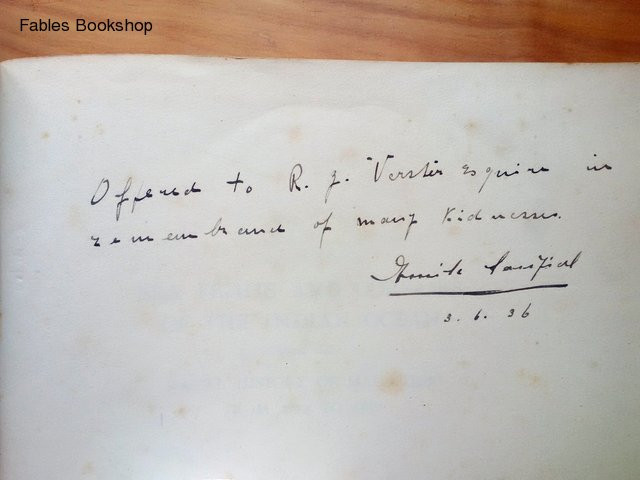 Fables Bookshop
Offered to R. J. Verster Esquire in
remembrance of many kidnesses.
3. 6. 36